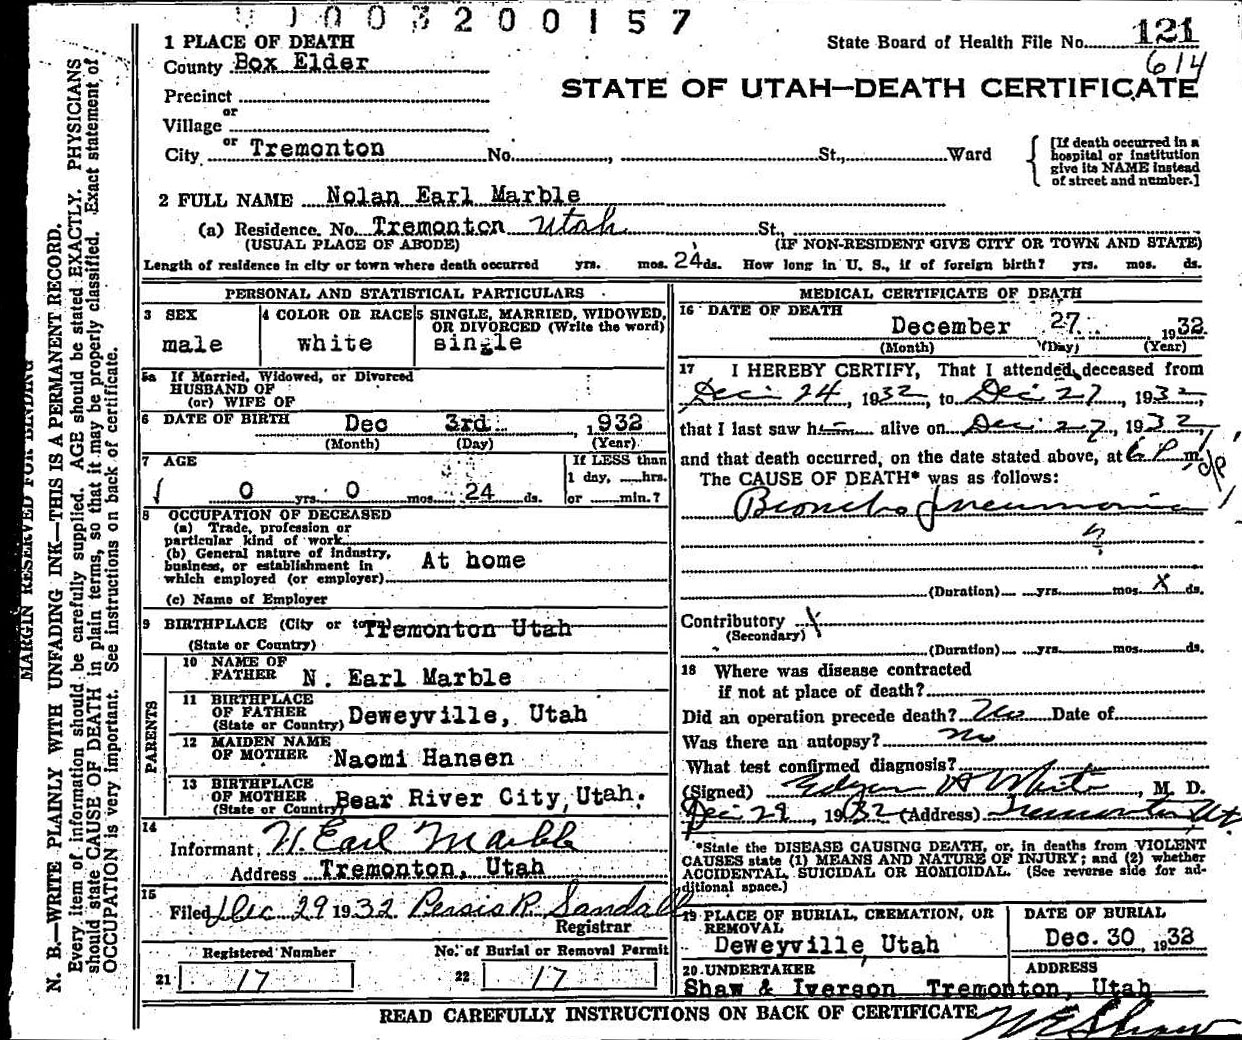 003200157
1 PLACE OF DEATH
State Board of Health File No. 121
614
County Box Elder
STATE OF UTAH—DEATH CERTIFICATE
Precinct
or
Village
or
City Tremonton No. , St., Ward
[If death occurred in a hospital or institution give its NAME instead of street and number.]
2 FULL NAME Nolan Earl Marble
(a) Residence. No. Tremonton Utah St.,
(USUAL PLACE OF ABODE) (IF NON-RESIDENT GIVE CITY OR TOWN AND STATE)
Length of residence in city or town where death occurred yrs. mos. 24 ds. How long in U. S., if of foreign birth? yrs. mos. ds.
PERSONAL AND STATISTICAL PARTICULARS
3 SEX
male
4 COLOR OR RACE
white
5 SINGLE, MARRIED, WIDOWED, OR DIVORCED (Write the word)
single
5a If Married, Widowed, or Divorced
HUSBAND OF
(or) WIFE OF
6 DATE OF BIRTH Dec 3rd , 1932
(Month) (Day) (Year)
7 AGE
0 yrs. 0 mos. 24 ds.
If LESS than
1 day, hrs.
or min.?
8 OCCUPATION OF DECEASED
(a) Trade, profession or
particular kind of work
(b) General nature of industry,
business, or establishment in
which employed (or employer)
At home
(c) Name of Employer
9 BIRTHPLACE (City or town) Tremonton Utah
(State or Country)
PARENTS
10 NAME OF
FATHER N. Earl Marble
11 BIRTHPLACE
OF FATHER
(State or Country) Deweyville, Utah
12 MAIDEN NAME
OF MOTHER Naomi Hansen
13 BIRTHPLACE
OF MOTHER
(State or Country) Bear River City, Utah.
14
Informant N. Earl Marble
Address Tremonton, Utah
15
Filed Dec 29 1932 Persis R. Sandall
Registrar
Registered Number
21 17
No. of Burial or Removal Permit
22 17
MEDICAL CERTIFICATE OF DEATH
16 DATE OF DEATH
December 27 1932
(Month) (Day) (Year)
17 I HEREBY CERTIFY, That I attended deceased from
Dec 24, 1932, to Dec 27, 1932,
that I last saw h alive on Dec 27, 1932,
and that death occurred, on the date stated above, at 6 P m.
The CAUSE OF DEATH* was as follows:
Broncho Pneumonia
(Duration) yrs. mos. X ds.
Contributory X
(Secondary)
(Duration) yrs. mos. ds.
18 Where was disease contracted
if not at place of death?
Did an operation precede death? No Date of
Was there an autopsy? no
What test confirmed diagnosis?
(Signed) Edgar H White, M. D.
Dec 29, 1932 (Address) Tremonton Ut.
*State the DISEASE CAUSING DEATH, or, in deaths from VIOLENT
CAUSES state (1) MEANS AND NATURE OF INJURY; and (2) whether
ACCIDENTAL, SUICIDAL OR HOMICIDAL. (See reverse side for ad-
ditional space.)
19 PLACE OF BURIAL, CREMATION, OR
REMOVAL
Deweyville, Utah
DATE OF BURIAL
Dec. 30, 1932
20 UNDERTAKER ADDRESS
Shaw & Iverson Tremonton, Utah
READ CAREFULLY INSTRUCTIONS ON BACK OF CERTIFICATE
W E Shaw
MARGIN RESERVED FOR BINDING
N. B.—WRITE PLAINLY WITH UNFADING INK—THIS IS A PERMANENT RECORD.
Every item of information should be carefully supplied. AGE should be stated EXACTLY. PHYSICIANS
should state CAUSE OF DEATH in plain terms, so that it may be properly classified. Exact statement of
OCCUPATION is very important. See instructions on back of certificate.